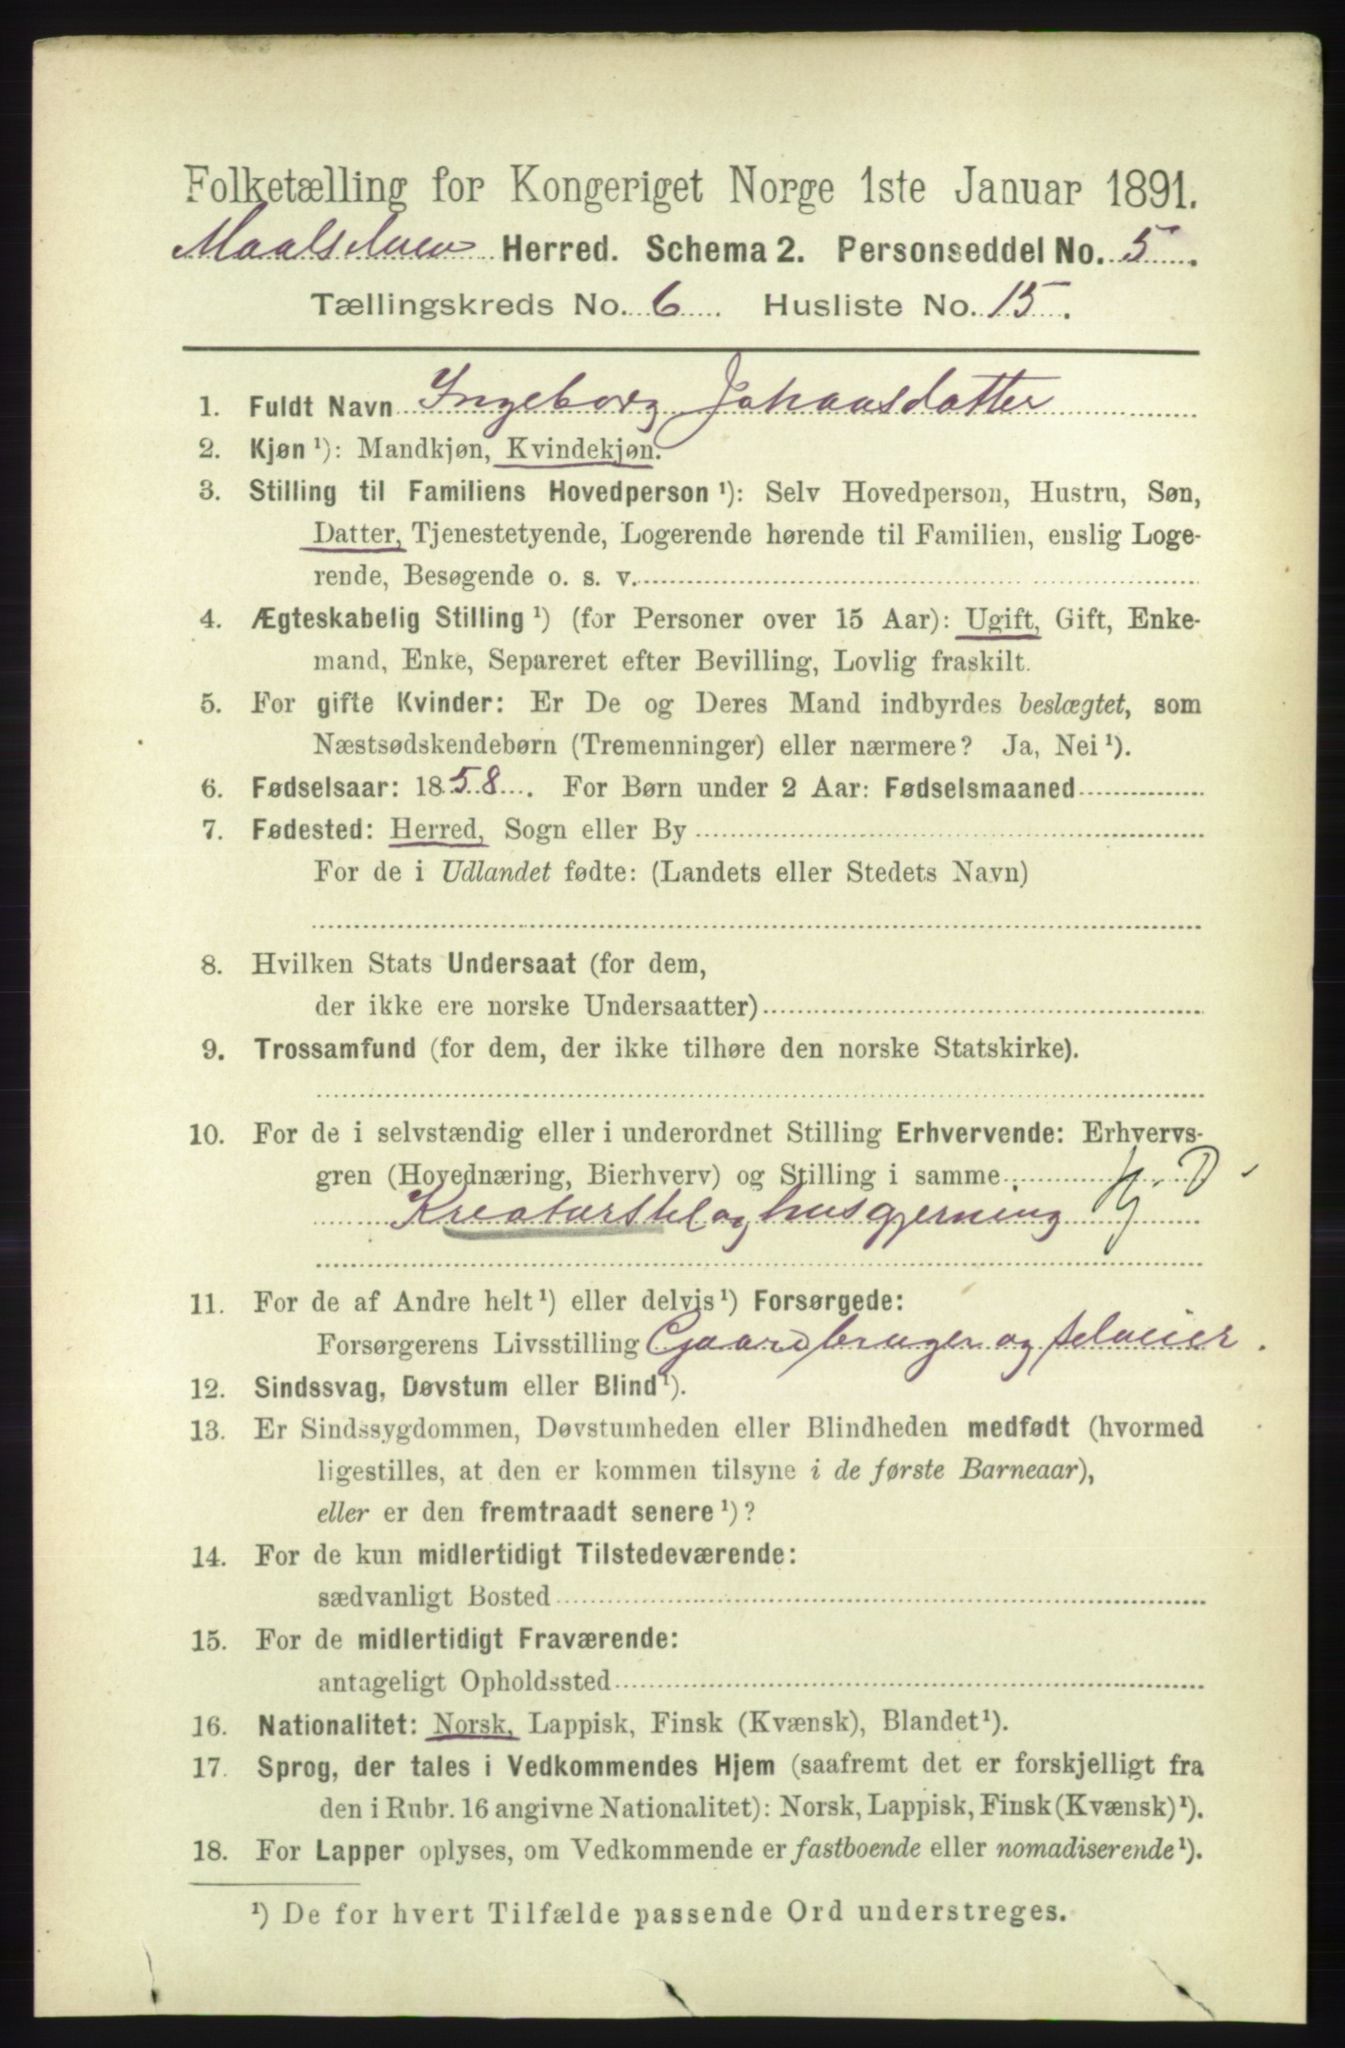 Folketælling for Kongeriget Norge 1ste Januar 1891.
Maalselven Herred. Schema 2. Personseddel No. 5
Tællingskreds No. 6 Husliste No. 15.
1. Fuldt Navn Ingeborg Johansdatter
2. Kjøn ¹): Mandkjøn, Kvindekjøn.
3. Stilling til Familiens Hovedperson ¹): Selv Hovedperson, Hustru, Søn,
Datter, Tjenestetyende, Logerende hørende til Familien, enslig Loge-
rende, Besøgende o. s. v.
4. Ægteskabelig Stilling ¹) (for Personer over 15 Aar): Ugift, Gift, Enke-
mand, Enke, Separeret efter Bevilling, Lovlig fraskilt.
5. For gifte Kvinder: Er De og Deres Mand indbyrdes beslægtet, som
Næstsødskendebørn (Tremenninger) eller nærmere? Ja, Nei ¹).
6. Fødselsaar: 1858. For Børn under 2 Aar: Fødselsmaaned
7. Fødested: Herred, Sogn eller By
For de i Udlandet fødte: (Landets eller Stedets Navn)
8. Hvilken Stats Undersaat (for dem,
der ikke ere norske Undersaatter)
9. Trossamfund (for dem, der ikke tilhøre den norske Statskirke).
10. For de i selvstændig eller i underordnet Stilling Erhvervende: Erhvervs-
gren (Hovednæring, Bierhverv) og Stilling i samme
Kreaturstel og husgjerning
11. For de af Andre helt ¹) eller delvis ¹) Forsørgede:
Forsørgerens Livsstilling Gaardbruger og selveier.
12. Sindssvag, Døvstum eller Blind ¹).
13. Er Sindssygdommen, Døvstumheden eller Blindheden medfødt (hvormed
ligestilles, at den er kommen tilsyne i de første Barneaar),
eller er den fremtraadt senere ¹)?
14. For de kun midlertidigt Tilstedeværende:
sædvanligt Bosted
15. For de midlertidigt Fraværende:
antageligt Opholdssted
16. Nationalitet: Norsk, Lappisk, Finsk (Kvænsk), Blandet ¹).
17. Sprog, der tales i Vedkommendes Hjem (saafremt det er forskjelligt fra
den i Rubr. 16 angivne Nationalitet): Norsk, Lappisk, Finsk (Kvænsk) ¹).
18. For Lapper oplyses, om Vedkommende er fastboende eller nomadiserende ¹).
¹) De for hvert Tilfælde passende Ord understreges.